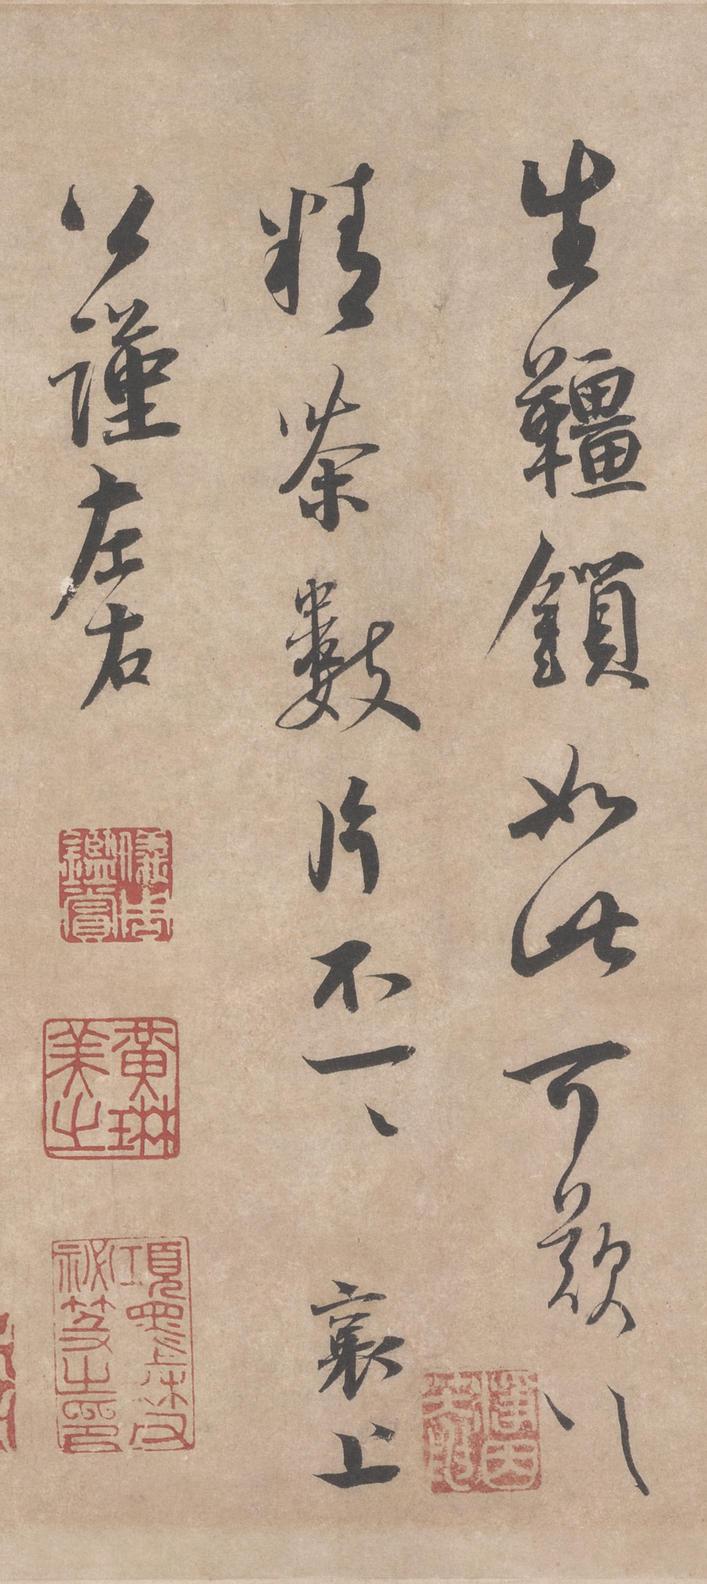 生韁鎖如此可歎〻
精茶數片不一〻 襄上
公謹左右
黃琳美之
項墨林父祕笈之印